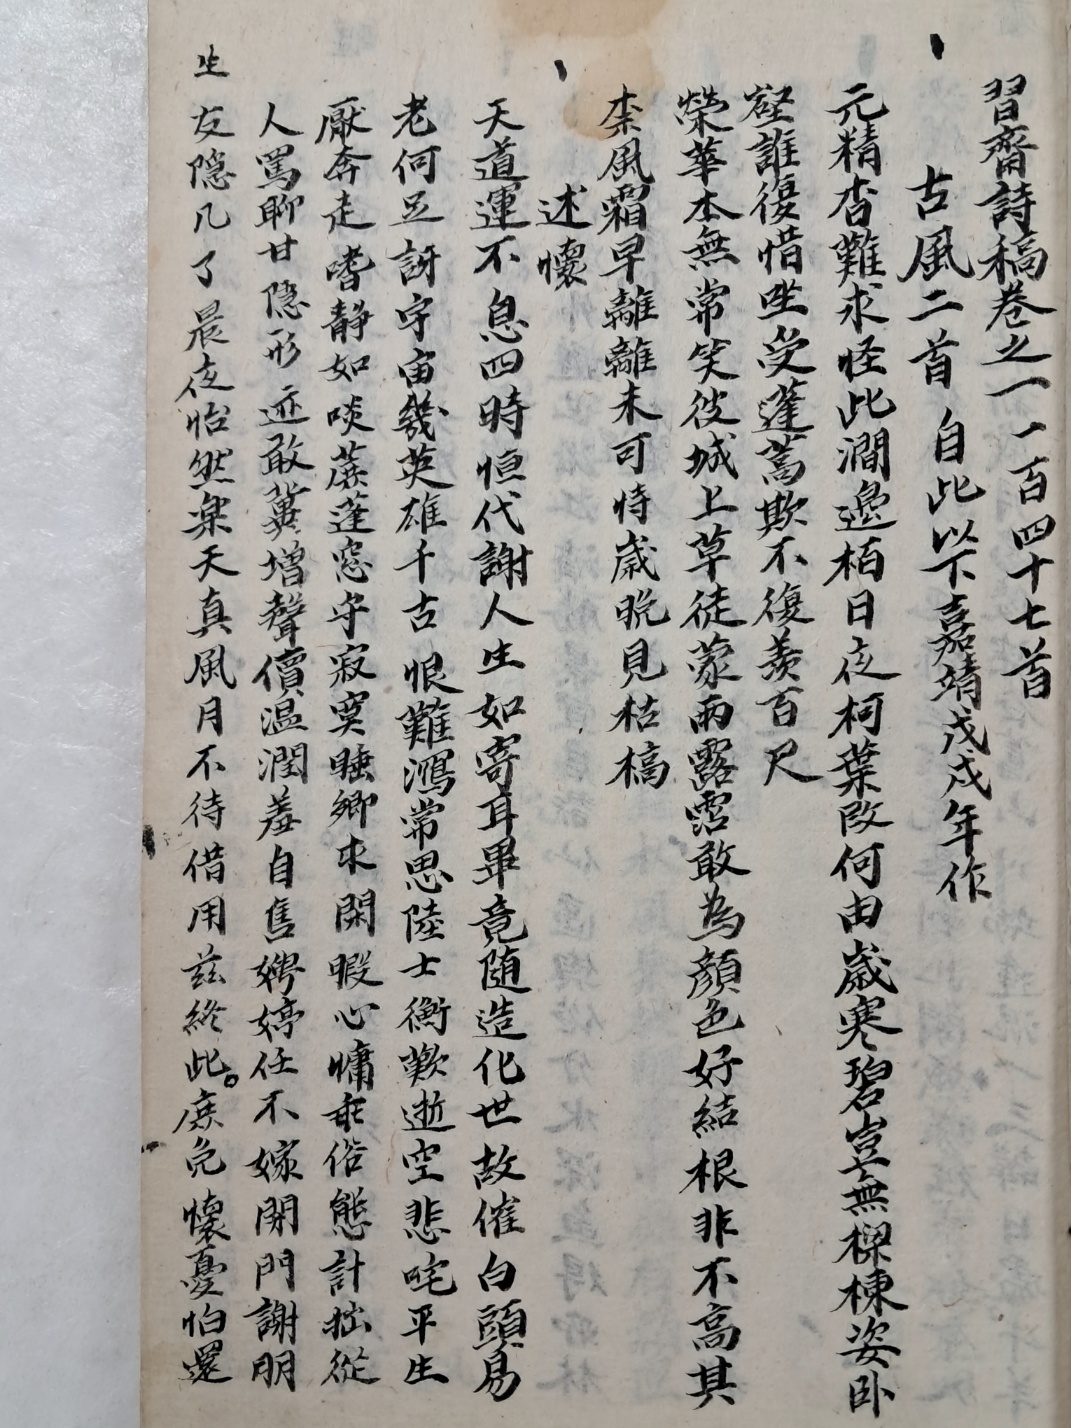 習齋詩稿卷之一 一百四十七首
古風二首 自此以下嘉靖戊戌年作
元精杳難求怪此澗邊栢日夜柯葉改何由歲寒碧豈無樑棟姿卧
壑誰復惜坐受蓬蒿欺不復羨百尺
榮華本無常笑彼城上草徒蒙雨露霑敢為顔色好結根非不高其
柰風霜早離離未可恃歲晩見枯槁
述懷
天道運不息四時恒代謝人生如寄耳畢竟随造化世故催白頭易
老何足訝宇宙幾英雄千古恨難瀉常思陸士衡歎逝空悲咤平生
厭奔走嗜静如啖蔗蓬窓守寂寞睡鄉求閑暇心慵乖俗態計拙從
人罵聊甘隐形迹敢冀增聲價温潤羞自售娉婷任不嫁閉門謝朋
友隐几了晨夜怡然樂天真風月不待借用玆終此。庶免懷憂怕還
生